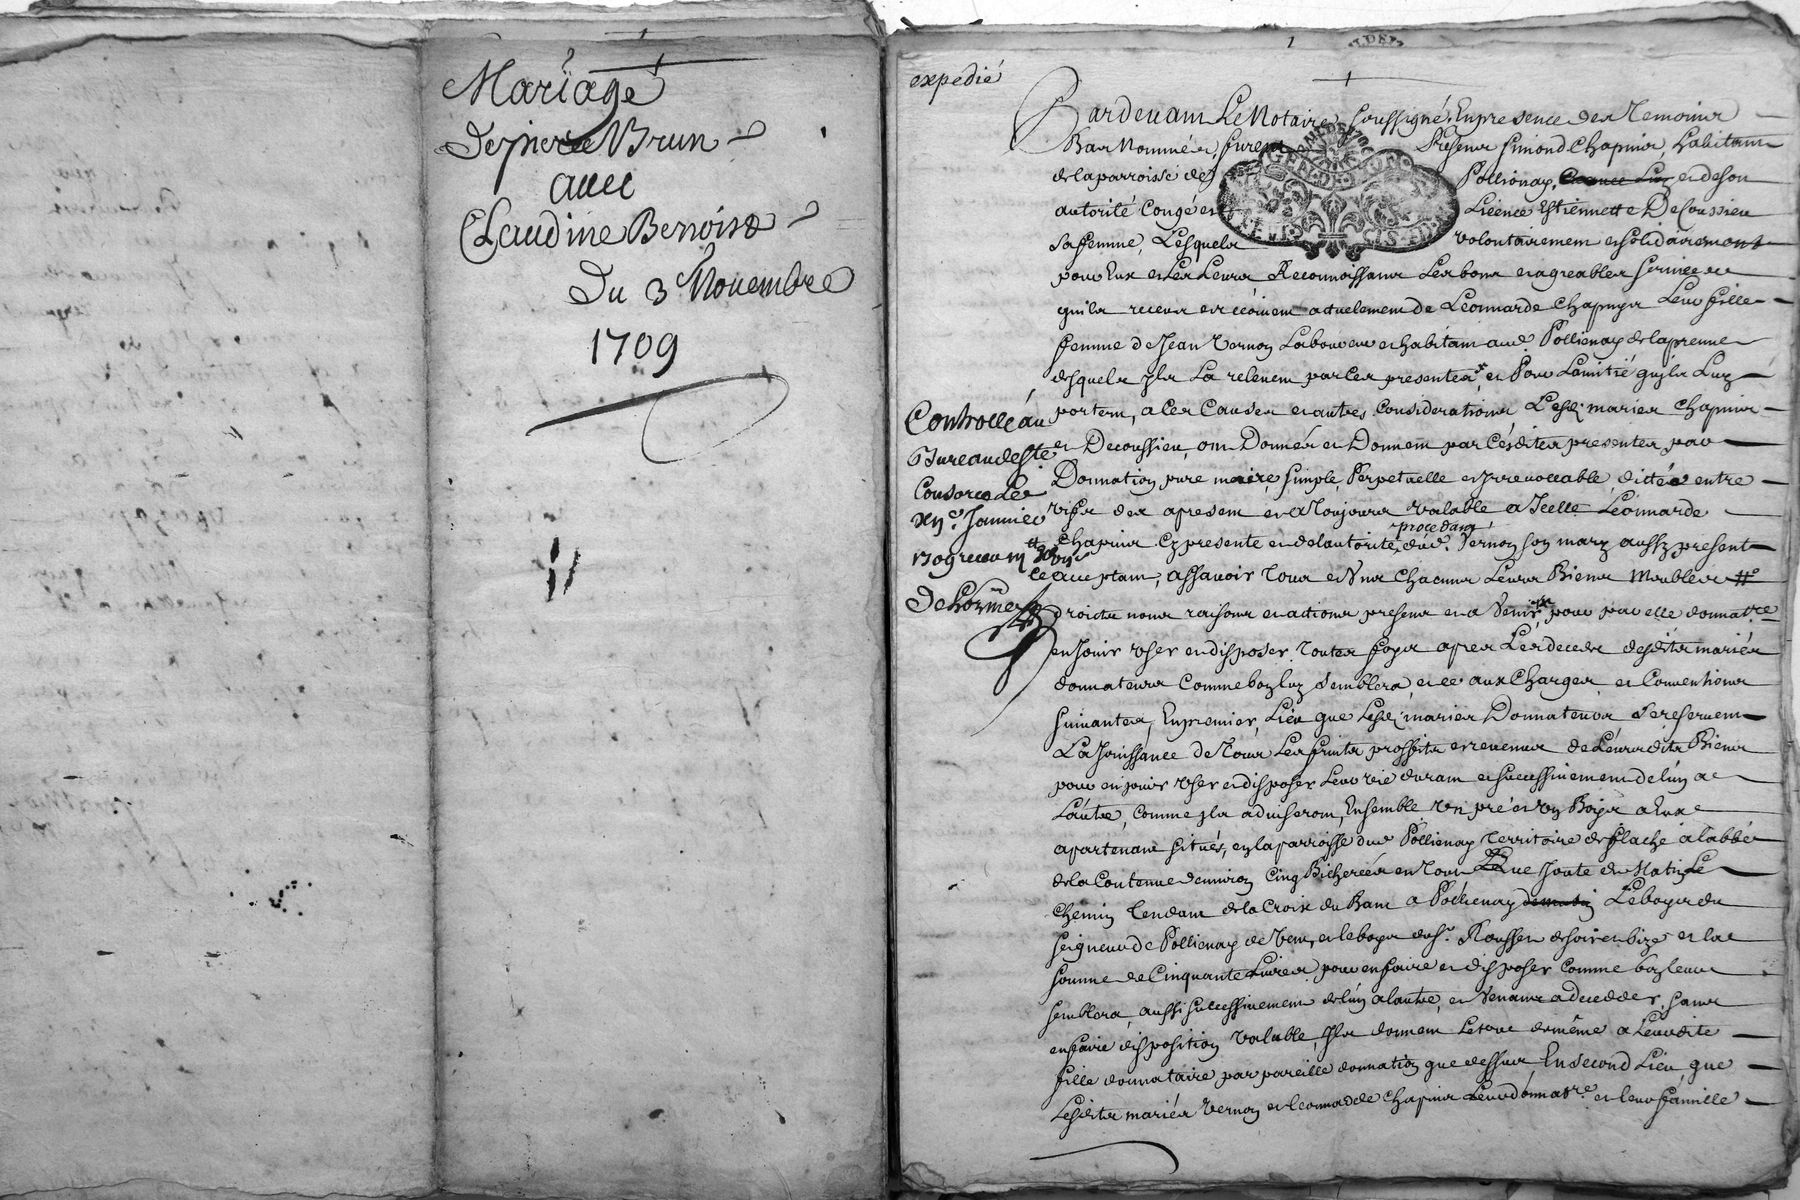 Mariage
De pierre Brun
avec
Claudine Benoist
Du 3 Novembre
1709
expedié
Pardevant Le Notaire soussigné, En presence des Temoins
Bas Nommés, furent presens Simond Chapuis, habitant
de la parroisse de Pollionay, et de son
autorité Congé et Licence Estiennette Decoussieu
sa femme, Lesquels volontairement et solidairement
pour Eux et Les Leurs Reconnoissans Les bons et agreables services
quils receus et recoivent actuelement de Leonnarde Chapuys Leur fille
femme de Jean Vernon Laboureur et habitant aud. Pollienay de la preuve
desquels yls La relevent par Ces presentes et Pour Lamitié quyls Luy
portent, a Ces Causes et autres Considerations Lesd. mariés Chapuis
et Decoussieu, ont Donnés et Donnent par Cesdites presentes, par
Donnation pure mere, simple, Perpetuelle et Irrevoccable, dictée entre
vifs des apresent et a Toujours valable a Icelle Leonnarde
Chapuis Cy presente et de lautorité, procedant dud. Vernon son mary aussy present
acceptant, assavoir Tous et Uns Chacuns Leurs Biens Meubles
droicts noms raisons et actions presens et a Venir, pour par elle donnat.re
en Jouir User et disposer Toutes foys apres Les deceds desdits mariés
donnateurs Comme bon luy semblera, et ce aux Charges et Conventions
suivantes, En premier Lieu que Lesd. mariés Donnateurs se reservent
La Jouissance de Tous Les fruits proffits et revenus de Leursdits Biens
pour en jouir User et disposer Leur vie durant et successivement de lun a
Lautre, Comme yls aduiseront, Ensemble Un pré et Un Boys a Eux
apartenant situés, en la parroisse dud. Pollienay Territoire de flache a labbé
de la Contenue denviron Cinq Bicherées en Tout Que Joute de Matin Le
Chemin Tendant de la Croix du Ban a Pollienay Le boys du
seigneur de Pollienay de Vent, et le boys du Sr. Rousset de soir et bize et la
somme de Cinquante Livres pour en faire et disposer Comme bon leur
semblera, aussi successivement de lun a lautre, et Venant a decedder sans
en faire disposition Valable, yls donnent Le tout de même a Leurdite
fille donnataire par pareille donnation que dessus En second Lieu, que
Lesdits mariés Vernon et Leonnarde Chapuis Leurd. donnat.re et leur famille
Controllé au
Bureau de Ste
Consorce Le
Janvier
1709 receu